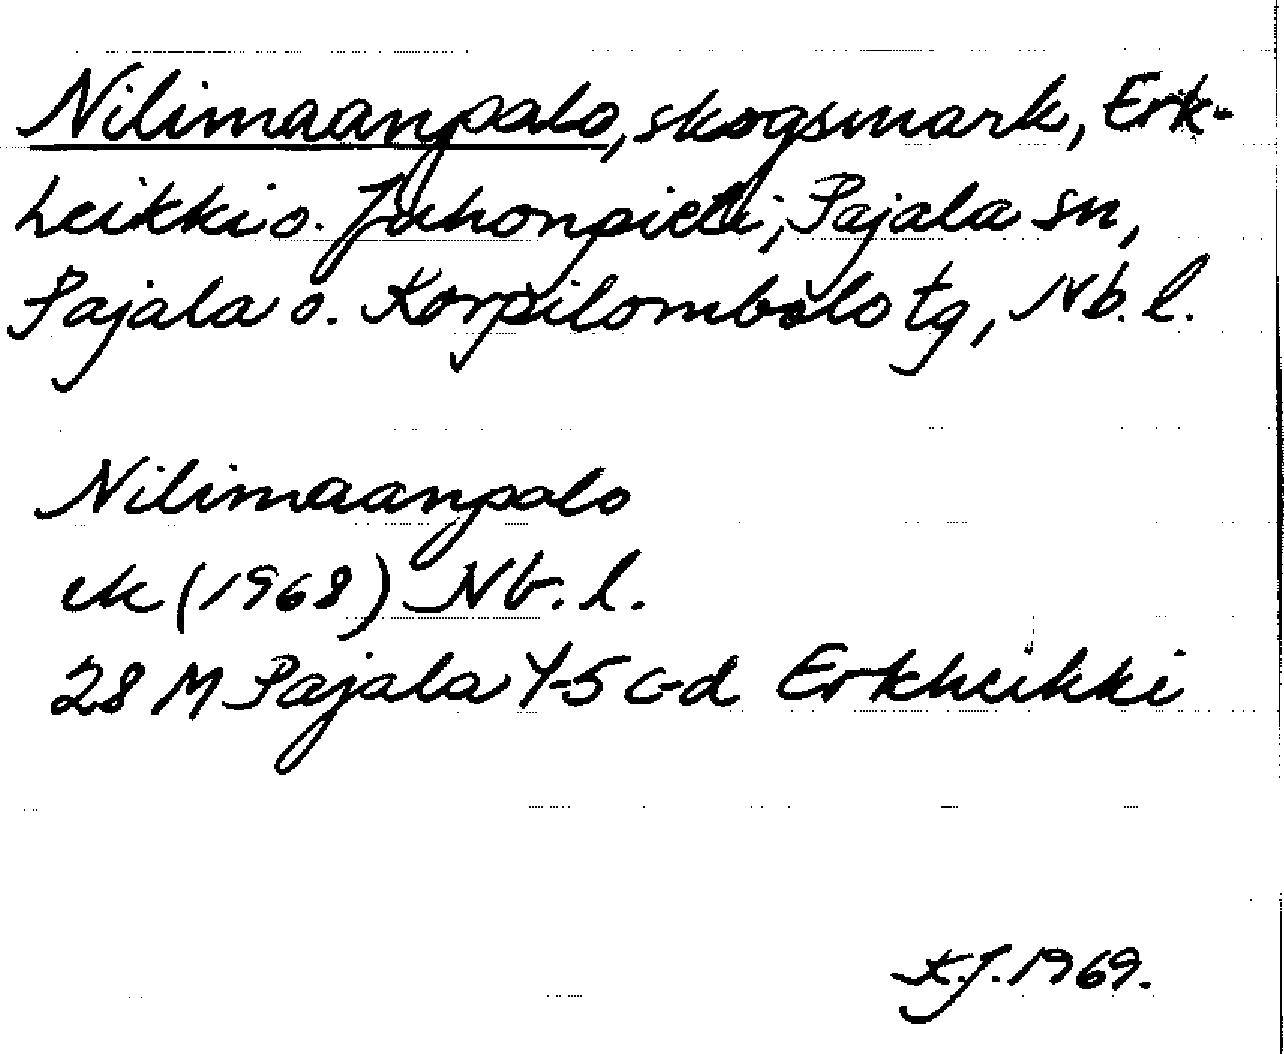 Nilimaanpalo, skogsmark, Erk-
heikki o. Juhonpieti, Pajala sn,
Pajala o. Korpilombolo tg, Nb. l.
Nilimaanpalo
ek (1968) Nb. l.
28 M Pajala 4-5 c-d Erkheikki
K.J. 1969.